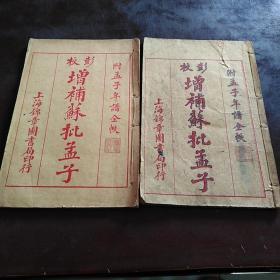 彭校
增補蘇批孟子
附孟子年譜全帙
上海錦章圖書局印行
彭校
增補蘇批孟子
附孟子年譜全帙
上海錦章圖書局印行